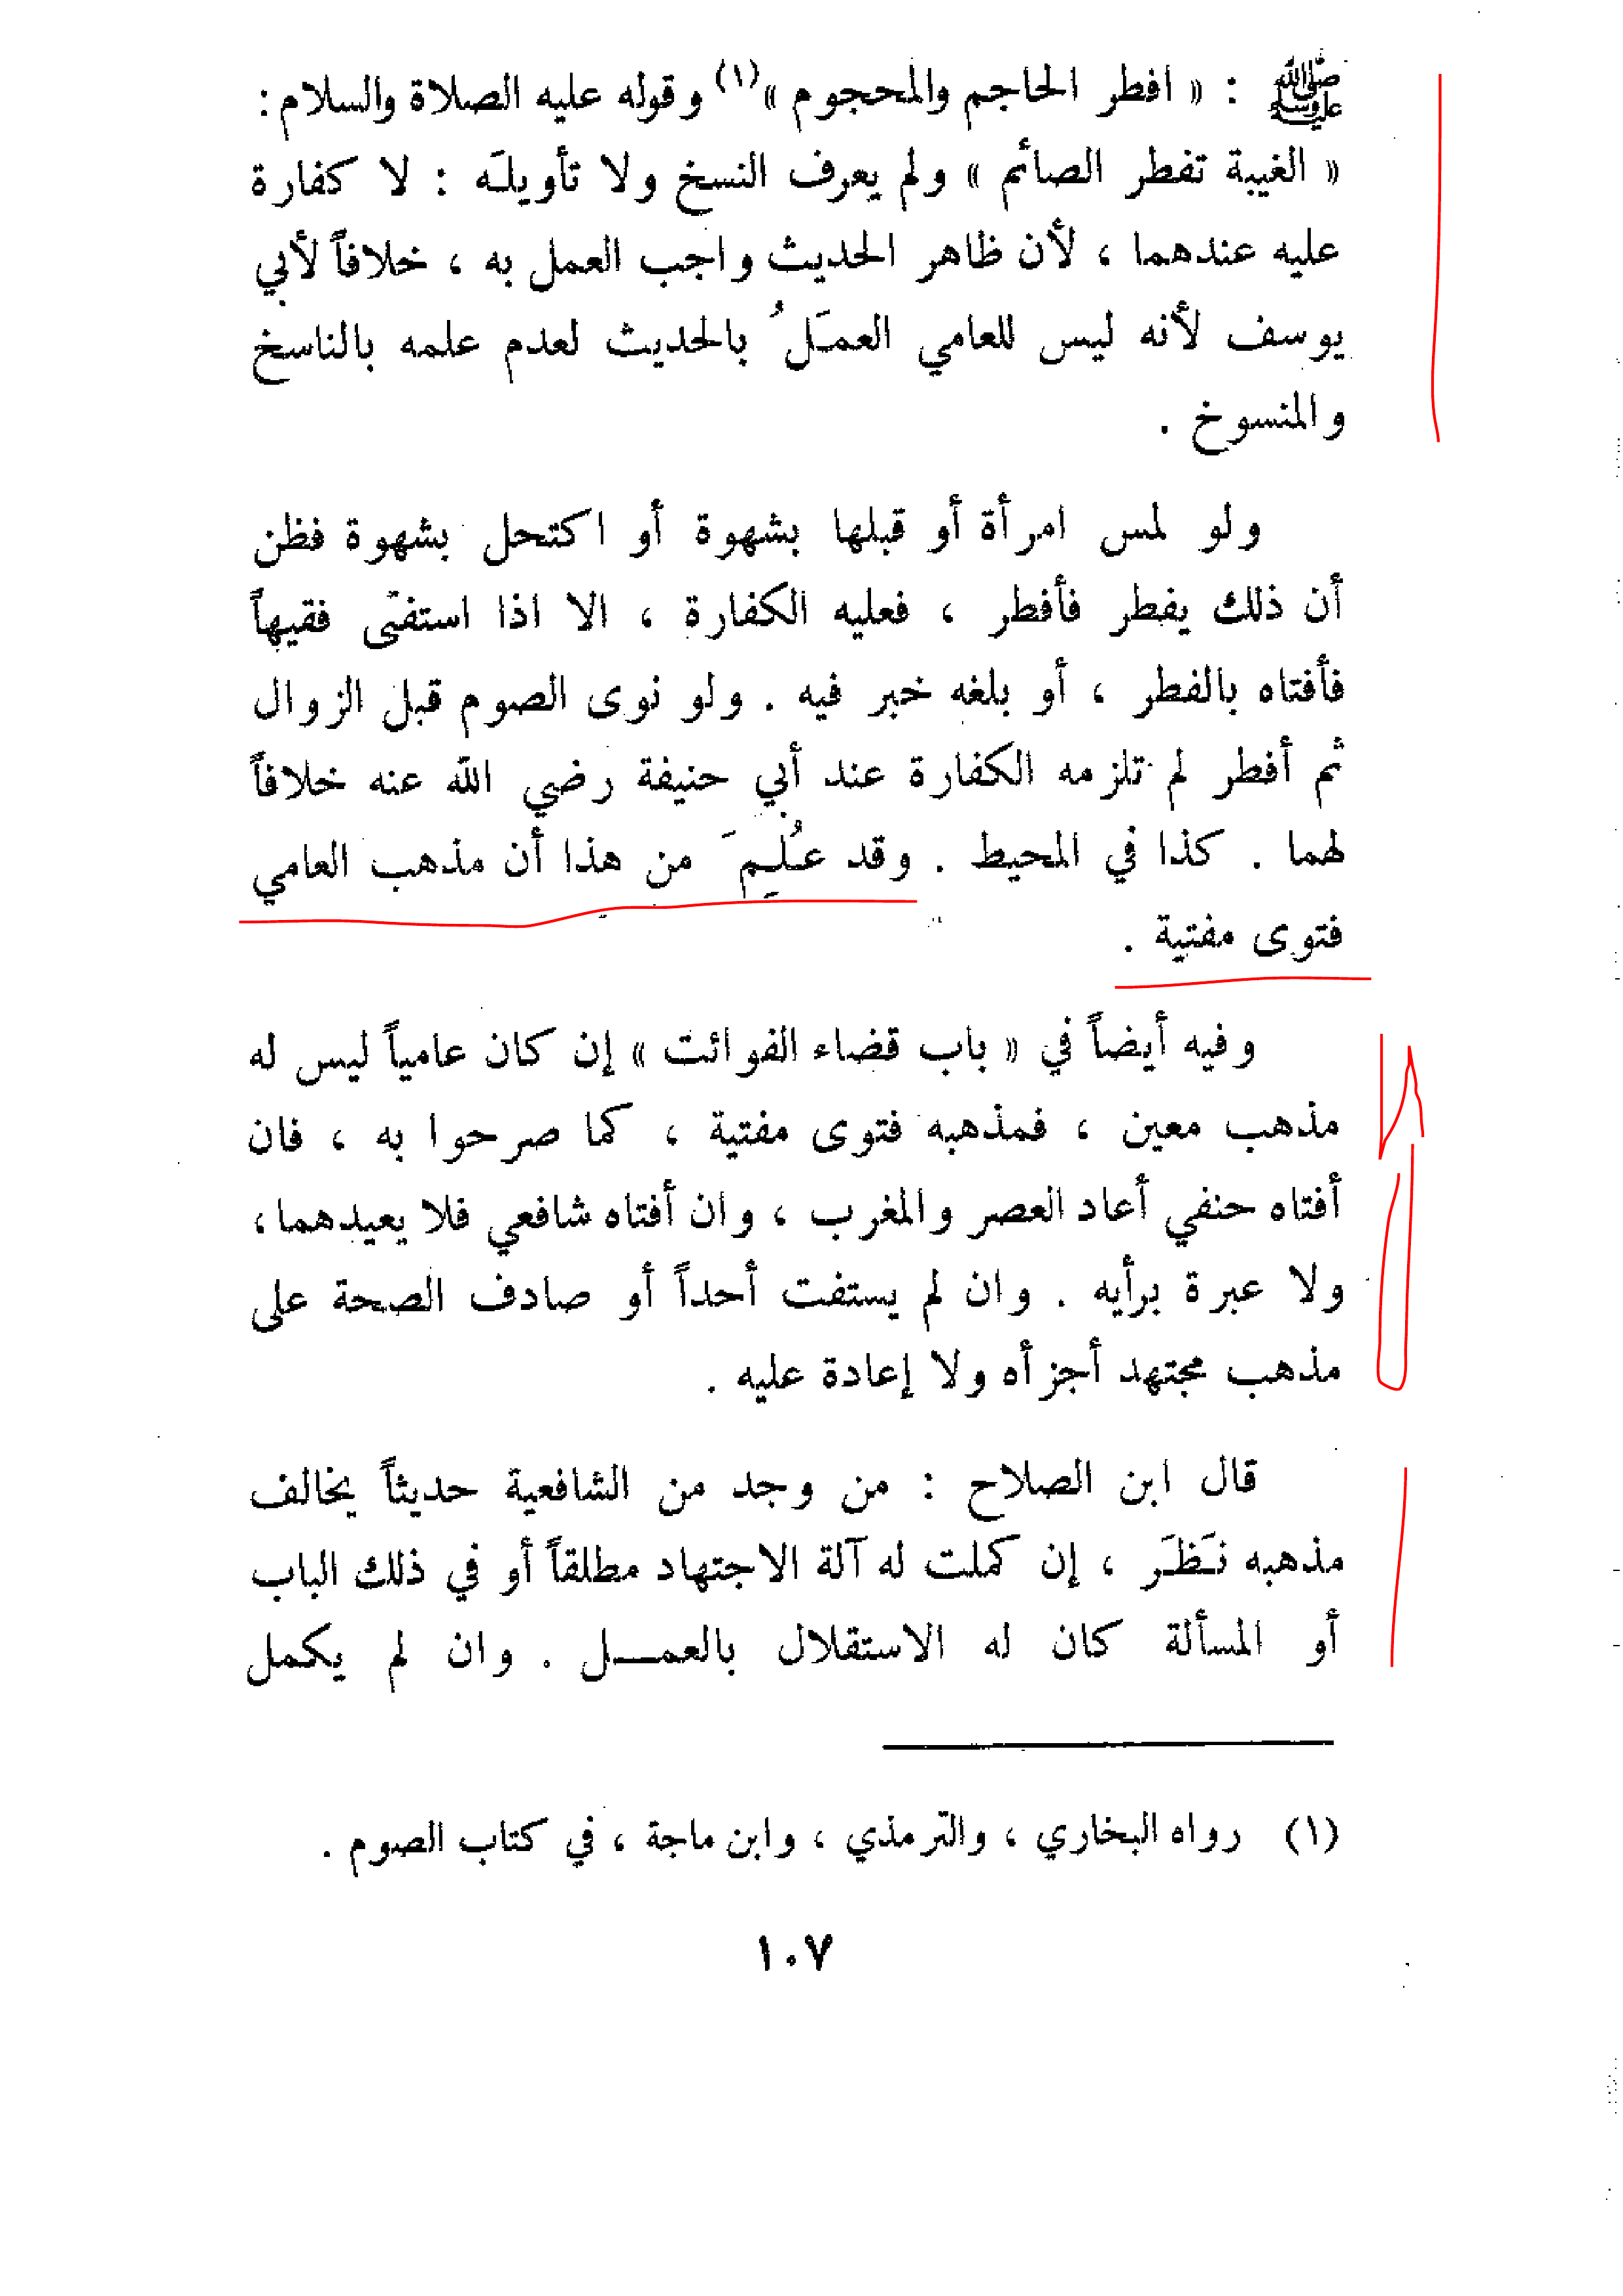 ﷺ : « افطر الحاجم والمحجوم »(١) وقوله عليه الصلاة والسلام :
« الغيبة تفطر الصائم » ولم يعرف النسخ ولا تأويلَه : لا كفارة
عليه عندهما ، لأن ظاهر الحديث واجب العمل به ، خلافاً لأبي
يوسف لأنه ليس للعامي العمَلُ بالحديث لعدم علمه بالناسخ
والمنسوخ .
ولو لمس امرأة أو قبلها بشهوة أو اكتحل بشهوة فظن
أن ذلك يفطر فأفطر ، فعليه الكفارة ، الا اذا استفتى فقيهاً
فأفتاه بالفطر ، أو بلغه خبر فيه . ولو نوى الصوم قبل الزوال
ثم أفطر لم تلزمه الكفارة عند أبي حنيفة رضي الله عنه خلافاً
لهما . كذا في المحيط . وقد عُلِمَ من هذا أن مذهب العامي
فتوى مفتية .
وفيه أيضاً في « باب قضاء الفوائت » إن كان عامياً ليس له
مذهب معين ، فمذهبه فتوى مفتية ، كما صرحوا به ، فان
أفتاه حنفي أعاد العصر والمغرب ، وان أفتاه شافعي فلا يعيدهما ،
ولا عبرة برأيه . وان لم يستفت أحداً أو صادف الصحة على
مذهب مجتهد أجزأه ولا إعادة عليه .
قال ابن الصلاح : من وجد من الشافعية حديثاً يخالف
مذهبه نَظَر ، إن كملت له آلة الاجتهاد مطلقاً أو في ذلك الباب
أو المسألة كان له الاستقلال بالعمــل . وان لم يكمل
(١) رواه البخاري ، والترمذي ، وابن ماجة ، في كتاب الصوم .
١٠٧